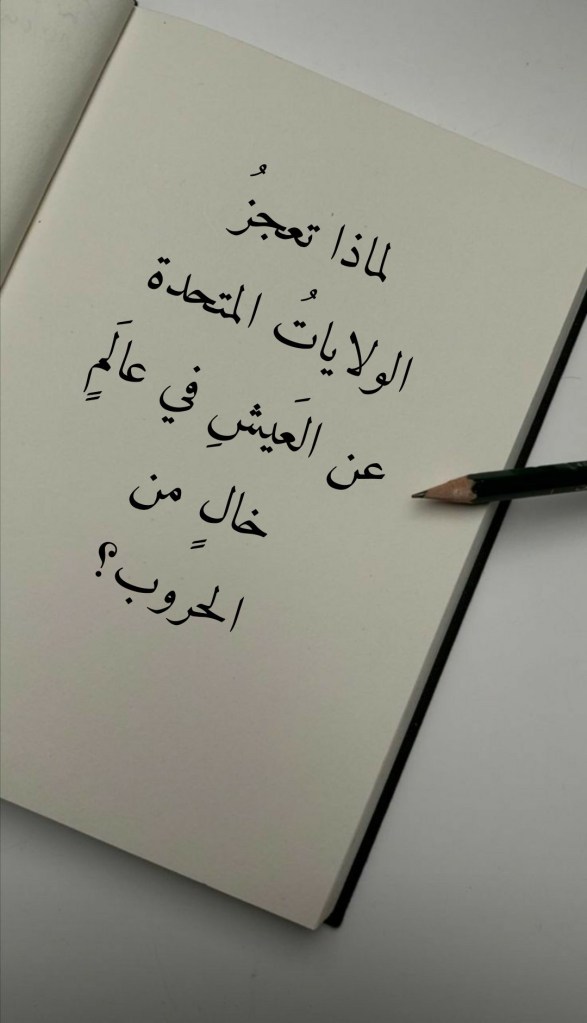 لماذا تعجزُ
الولاياتُ المتحدة
عن العَيشِ في عالَمٍ
خالٍ من
الحروب؟